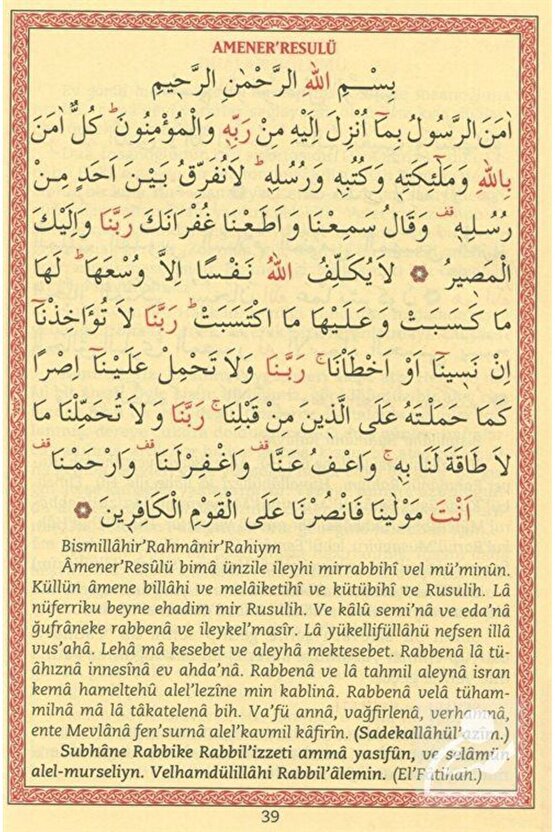 AMENER'RESULÜ
بِسْمِ اللهِ الرَّحْمٰنِ الرَّحٖيمِ
اٰمَنَ الرَّسُولُ بِمَٓا اُنْزِلَ اِلَيْهِ مِنْ رَبِّهٖ وَالْمُؤْمِنُونَۜ كُلٌّ اٰمَنَ
بِاللهِ وَمَلٰٓئِكَتِهٖ وَكُتُبِهٖ وَرُسُلِهٖۜ لَانُفَرِّقُ بَيْنَ اَحَدٍ مِنْ
رُسُلِهٖࣞ وَقَالُ سَمِعْنَا وَ اَطَعْنَا غُفْرَانَكَ رَبَّنَا وَاِلَيْكَ
الْمَصٖيرُ ۞ لَايُكَلِّفُ اللهُ نَفْسًا اِلَّا وُسْعَهَاۜ لَهَا
مَا كَسَبَتْ وَ عَلَيْهَا مَا اكْتَسَبَتْۜ رَبَّنَا لَا تُؤَاخِذْنَٓا
اِنْ نَسٖينَٓا اَوْ اَخْطَاْنَاۚ رَبَّنَا وَلَا تَحْمِلْ عَلَيْنَٓا اِصْرًا
كَمَا حَمَلْتَهُ عَلَى الَّذٖينَ مِنْ قَبْلِنَاۚ رَبَّنَا وَ لَا تُحَمِّلْنَا مَا
لَا طَاقَةَ لَنَا بِهٖۚ وَاعْفُ عَنَّاࣞ وَاغْفِرْ لَنَاࣞ وَارْحَمْنَاࣞ
اَنْتَ مَوْلٰينَا فَانْصُرْنَا عَلَى الْقَوْمِ الْكَافِرٖينَ ۞
Bismillâhir'Rahmânir'Rahiym
Âmener'Resûlü bimâ ünzile ileyhi mirrabbihî vel mü'minûn.
Küllün âmene billâhi ve melâiketihî ve kütübihî ve Rusulih. Lâ
nüferriku beyne ehadim mir Rusulih. Ve kâlû semi'nâ ve eda'nâ
ğufrâneke rabbenâ ve ileykel'masîr. Lâ yükellifüllâhü nefsen illâ
vus'ahâ. Lehâ mâ kesebet ve aleyhâ mektesebet. Rabbenâ lâ tü-
âhıznâ innesînâ ev ahda'nâ. Rabbenâ ve lâ tahmil aleynâ isran
kemâ hameltehû alel'lezîne min kablinâ. Rabbenâ velâ tüham-
milnâ mâ lâ tâkatelenâ bih. Va'fü annâ, vağfirlenâ, verhamnâ,
ente Mevlânâ fen'surnâ alel'kavmil kâfirîn. (Sadekallâhül'azîm.)
Subhâne Rabbike Rabbil'izzeti ammâ yasıfûn, ve selâmün
alel-murseliyn. Velhamdülillâhi Rabbil'âlemin. (El'Fâtihah.)
39